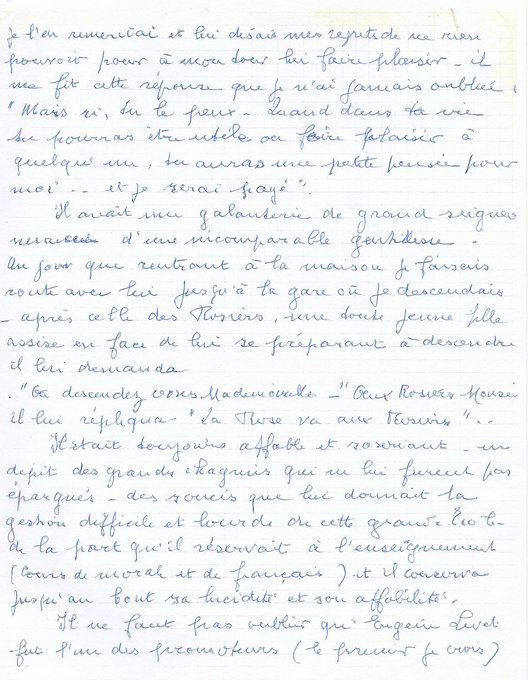 Je l'en remerciai et lui disais mes regrets de ne rien
pouvoir pour à mon tour lui faire plaisir - il
me fit cette réponse que je n'ai jamais oubliée :
"Mais si, tu le peux - Quand dans ta vie
tu pourras être utile ou faire plaisir à
quelqu'un, tu auras une petite pensée pour
moi... et je serai payé".
Il avait une galanterie de grand seigneur
d'une incomparable gentillesse -
Un jour que rentrant à la maison je faisais
route avec lui jusqu'à la gare où je descendais
- après celle des Rosiers, une toute jeune fille
assise en face de lui se préparant à descendre
il lui demanda
- "Où descendez vous Mademoiselle - "Aux Rosiers Monsieur
il lui répliqua "La Rose va aux Rosiers"..
Il était toujours affable et souriant - en
dépit des grands chagrins qui ne lui furent pas
épargnés - des soucis que lui donnait la
gestion difficile et lourde de cette grande Ecole
de la part qu'il réservait à l'enseignement
(Cours de morale et de français) et il conserva
jusqu'au bout sa lucidité et son affabilité.
Il ne faut pas oublier qu'Eugein Livet
fut l'un des promoteurs (le premier je crois)